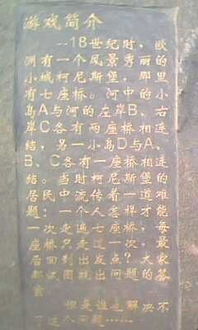 游戏简介
18世纪时，欧
洲有一个风景秀丽的
小城柯尼斯堡，那里
有七座桥。河中的小
岛A与河的左岸B、右
岸C各有两座桥相连
结，另一小岛D与A、
B、C各有一座桥相连
结。当时柯尼斯堡的
居民中流传着一道难
题：一个人怎样才能
一次走遍七座桥，每
座桥只走过一次，最
后回到出发点？大家
都试图找出问题的答
案
但是谁也解决不
了这个问题……